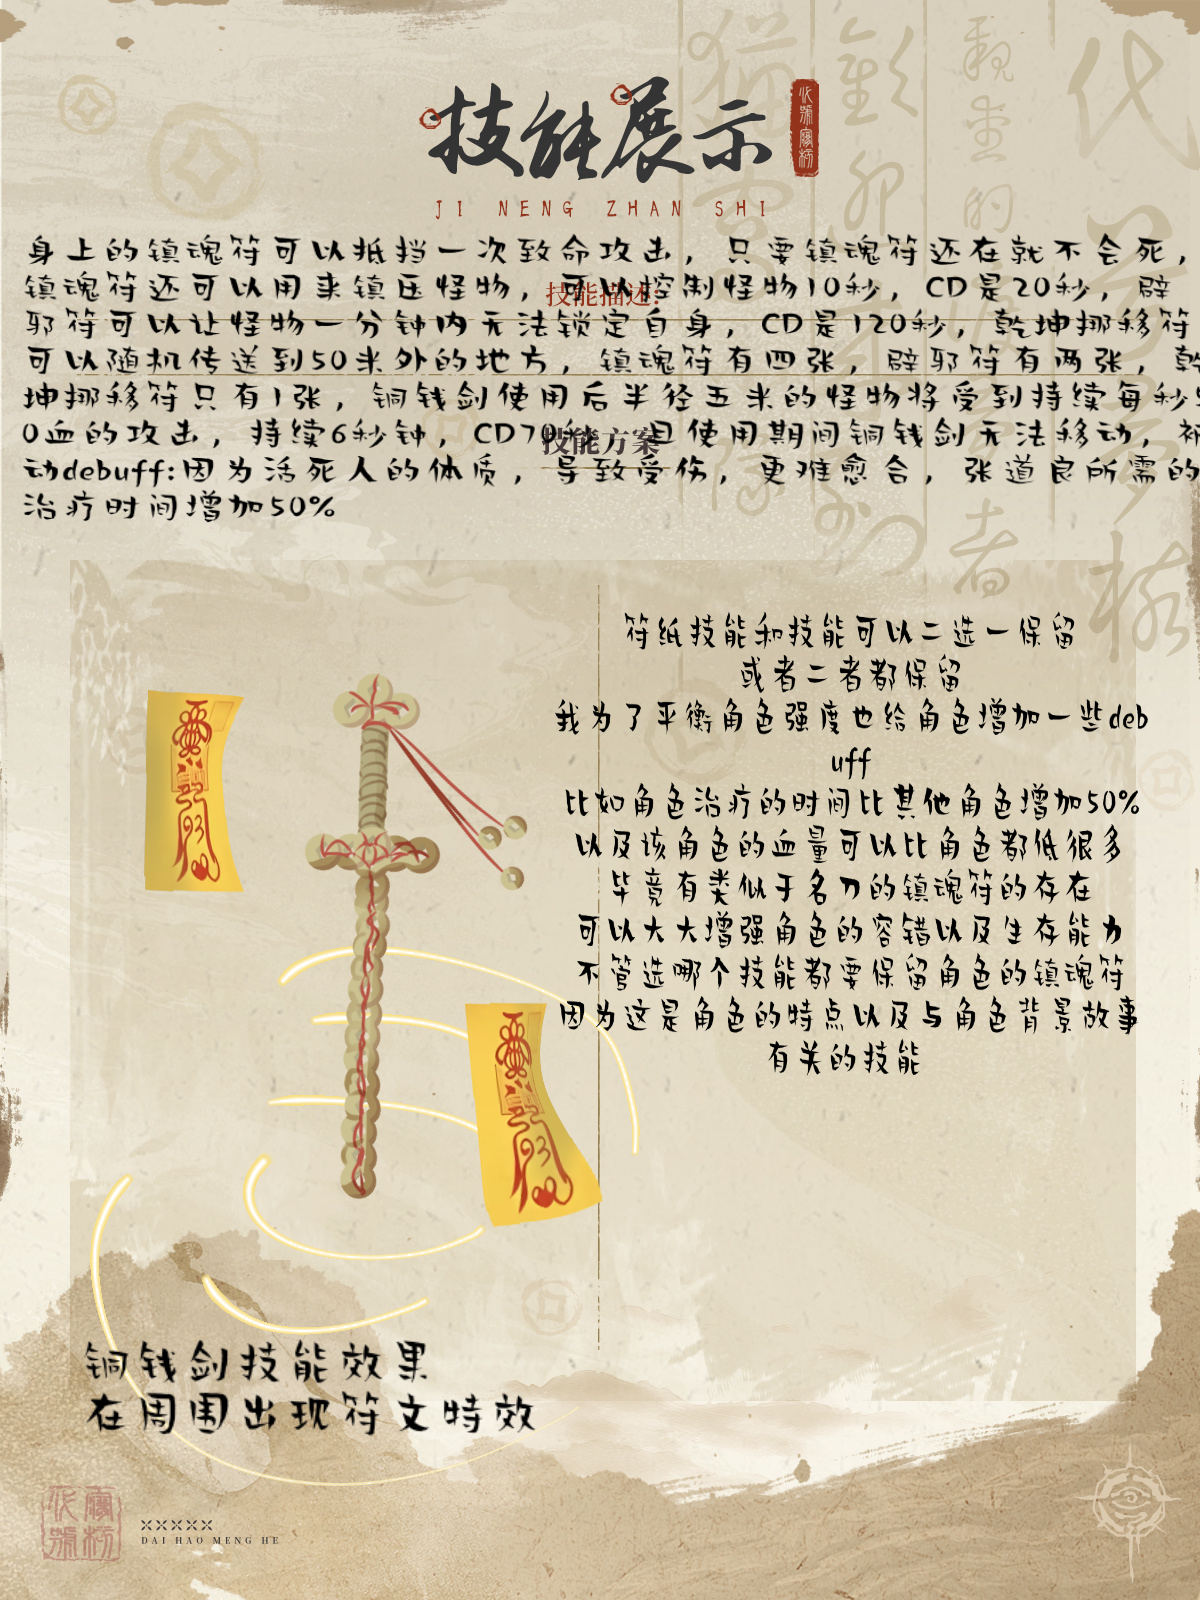 技能展示
JI NENG ZHAN SHI
身上的镇魂符可以抵挡一次致命攻击，只要镇魂符还在就不会死，
镇魂符还可以用来镇压怪物，可以控制怪物10秒，CD是20秒，辟
技能描述:
邪符可以让怪物一分钟内无法锁定自身，CD是120秒，乾坤挪移符
可以随机传送到50米外的地方，镇魂符有四张，辟邪符有两张，乾
坤挪移符只有1张，铜钱剑使用后半径五米的怪物将受到持续每秒
0血的攻击，持续6秒钟，CD70秒，且使用期间铜钱剑无法移动，被
技能方案
动debuff:因为活死人的体质，导致受伤，更难愈合，张道良所需的
治疗时间增加50%
符纸技能和技能可以二选一保留
或者二者都保留
我为了平衡角色强度也给角色增加一些deb
uff
比如角色治疗的时间比其他角色增加50%
以及该角色的血量可以比角色都低很多
毕竟有类似于名刀的镇魂符的存在
可以大大增强角色的容错以及生存能力
不管选哪个技能都要保留角色的镇魂符
因为这是角色的特点以及与角色背景故事
有关的技能
铜钱剑技能效果
在周围出现符文特效
DAI HAO MENG HE